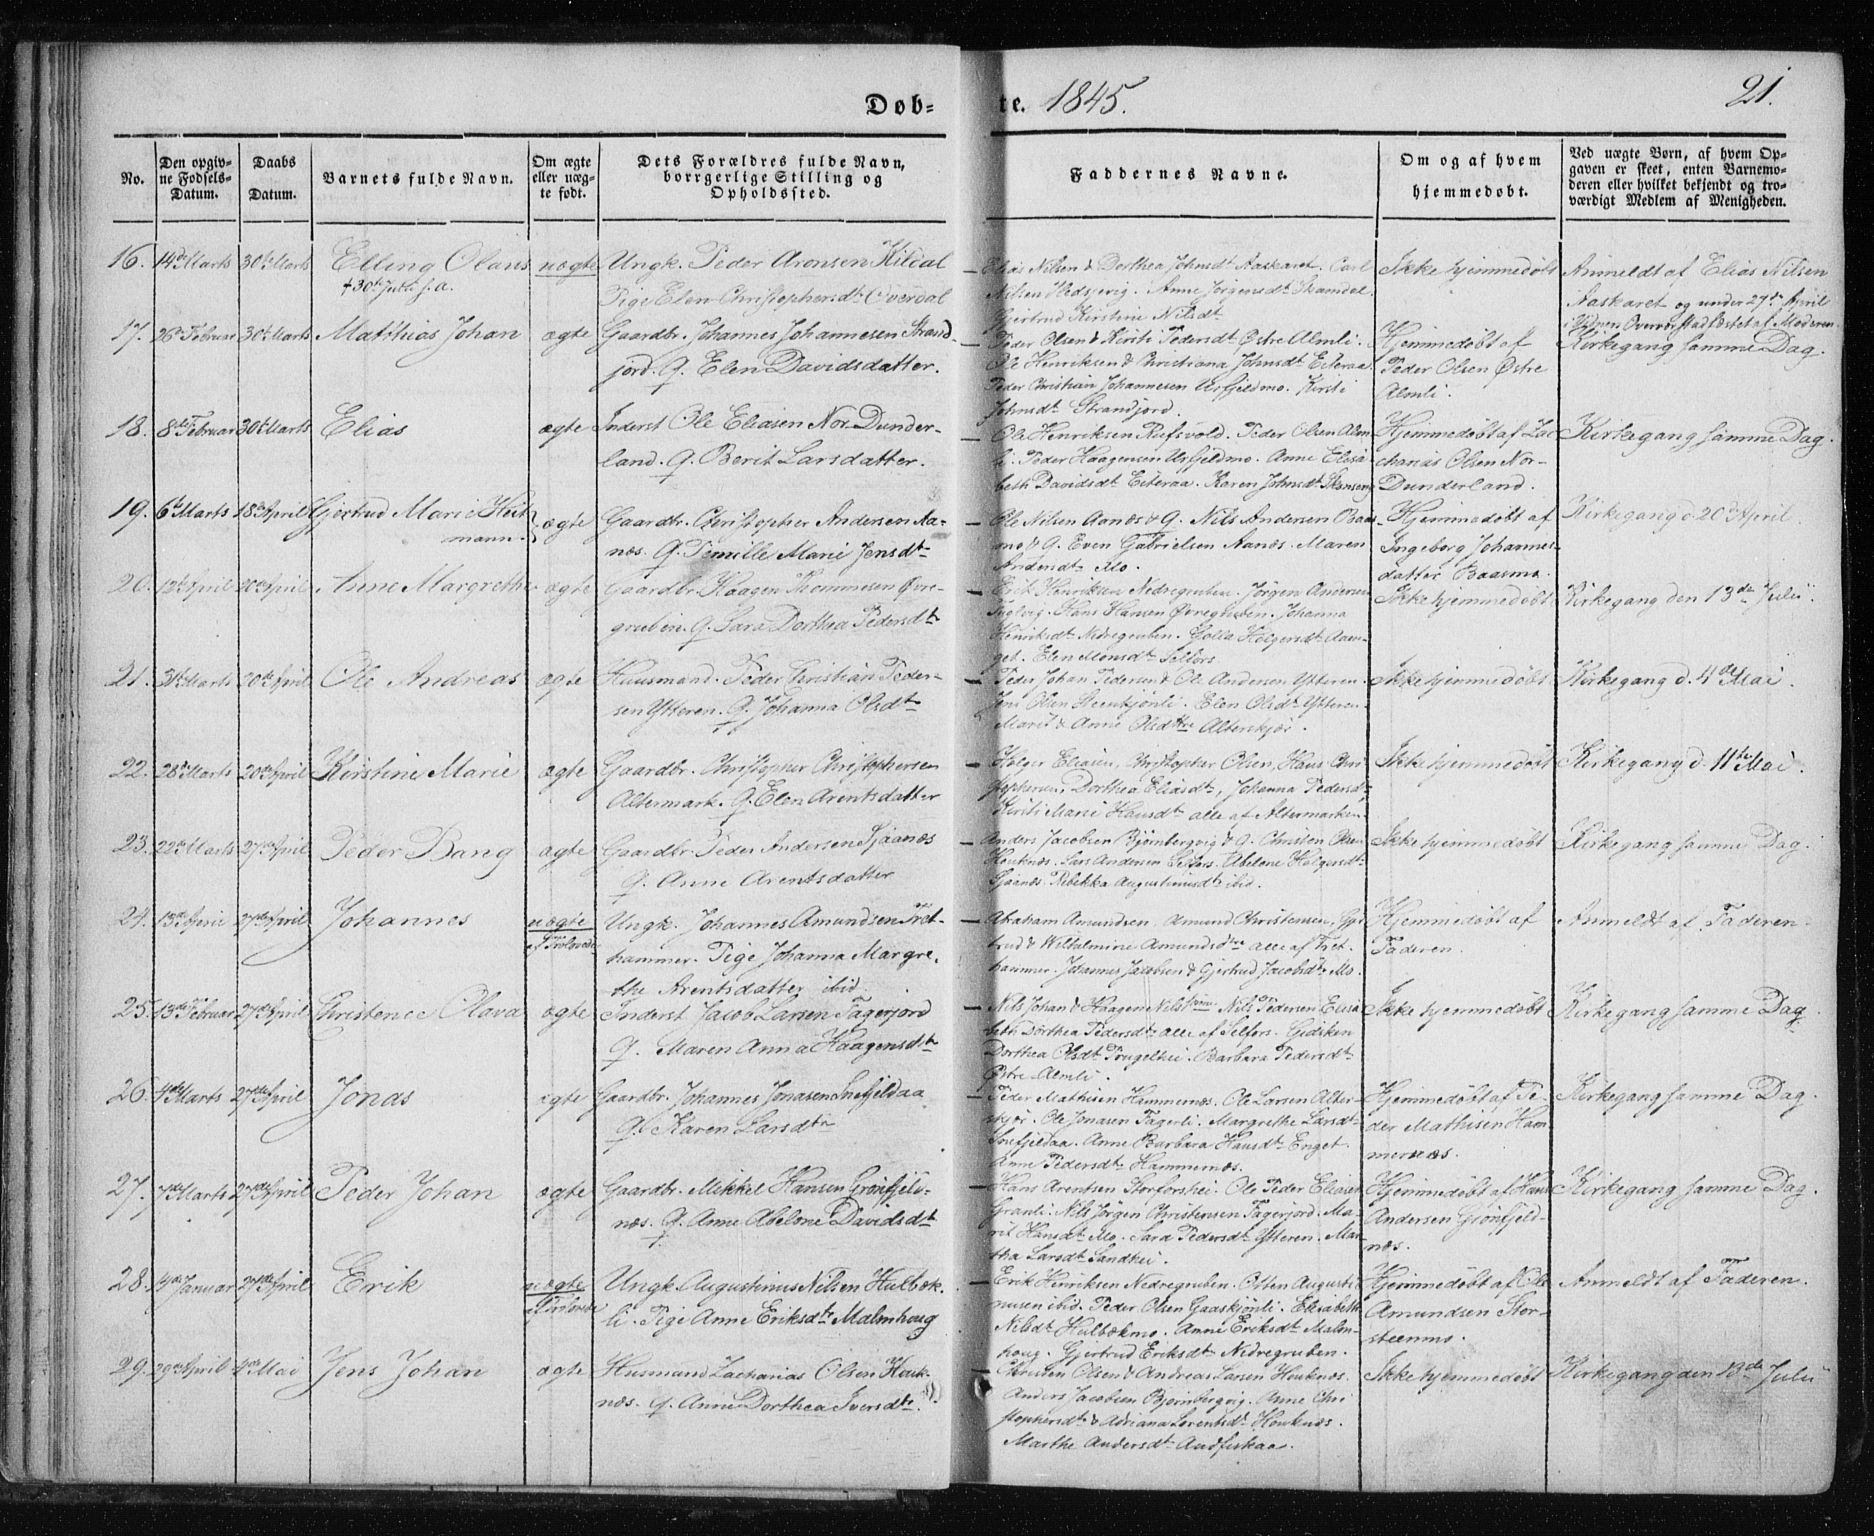 Døb=
te. 1845.
21.
No.
Den opgiv=
ne Fødsels=
Datum.
Daabs
Datum.
Barnets fulde Navn.
Om ægte
eller uæg=
te født.
Dets Forældres fulde Navn,
borrgerlige Stilling og
Opholdssted.
Faddernes Navne.
Om og af hvem
hjemmedøbt.
Ved uægte Børn, af hvem Op=
gaven er skeet, enten Barnemo=
deren eller hvilket bekjendt og tro=
værdigt Medlem af Menigheden.
16. 14de Marts 30te Marts Elling Olaus uægte Ungk. Peder Aronsen
Pige Elen Christophersdt Överdal
Elias Nilsen & Dorthea Johnsdt Aaskaret. Carl
Nilsen Anne Jörgensdt
Gjertrud Kirstine Nilsdt
Ikke hjemmedøbt
Anmeldt af Elias Nilsen
Aaskaret og under 27de April
af Moderen
17. 26de Februar 30te Marts Matthias Johan ægte Gaardbr. Johannes Johannesen Strand-
jord. Q. Elen Davidsdatter.
Peder Olsen & Kirsti Pedersdt Østre Almli.
Ole Henriksen & Christiana Johnsdt Eiteraa
Peder Christian Johannesen Urfjeldmo. Kirsti
Johnsdt Strandjord.
Hjemmedøbt af
Peder Olsen Østre
Almli.
Kirkegang samme Dag.
18. 8de Februar 30te Marts Elias ægte Inderst Ole Eliasen Nor Dunder-
land. Q. Berit Larsdatter.
Ole Henriksen Rufsvold. Peder Olsen Alm-
li. Peder Haagensen Urfjeldmo. Anne Elisa-
beth Davidsdt Eiteraa. Karen Johnsdt
Hjemmedøbt af Zac
charias Olsen Nor-
Dunderland.
Kirkegang samme Dag.
19. 6te Marts 18de April Gjertrud Marie Heit-
mann. ægte Gaardbr. Christopher Andersen Aa-
næs. Q. Pernille Marie Jensdt
Ole Nilsen Aanæs & Q. Nils Andersen Baas-
mo & Q. Even Gabrielsen Aanæs. Maren
Andersdt Mo.
Hjemmedøbt af
Ingeborg Johannes-
datter Baasmo.
Kirkegang d. 20de April
20. 12te April 20de April Anne Margrethe ægte Gaardbr. Haagen Thommesen Øvre-
gruben. Q. Sara Dorthea Pedersdt
Erik Henriksen Nedregruben. Jörgen Andersen
Hans Hansen Øvregruben. Johanna
Henriksdt Nedregruben. Holgersdt
Elen Monsdt Selfors.
Ikke hjemmedøbt
Kirkegang den 13de Julii.
21. 31te Marts 20de April Ole Andreas ægte Huusmand. Peder Christian Peder-
sen Ytteren. Q. Johanna Olsdt
Peder Johan Pedersen & Ole Andersen Ytteren.
Jens Olsen Steenkjönli. Elen Olsdt Ytteren.
Maren & Anne Olsdttre Alterskjær.
Ikke hjemmedøbt
Kirkegang d. 4de Mai.
22. 28de Marts 20de April Kirstine Marie ægte Gaardbr. Christopher Christophersen
Altermark. Q. Elen Arentsdatter
Holger Eliasen, Christopher Olsen, Hans Chri-
stophersen, Dorthea Eliasdt, Johanna Pedersdt,
Kirsti Marie Hansdt alle af Altermarken
Ikke hjemmedøbt
Kirkegang d. 11te Mai.
23. 22de Marts 27de April Peder Bang ægte Gaardbr. Peder Andersen Sjaanæs
Q. Anne Arentsdatter
Anders Jacobsen Bjørnbergvig & Q. Christen Olsen
Houknæs. Andersen Selfors. Abelone Holgersdt
Sjaanæs. Rebekka Augustinusdt ibid.
Ikke hjemmedøbt
Kirkegang samme Dag.
24. 13de April 27de April Johannes uægte
Trolovede
Ungk. Johannes Amundsen Fret-
hammer. Pige Johanna Margre-
the Arentsdatter ibid.
Abraham Amundsen. Amund Christensen, Gjer
trud & Wilhelmine Amundsdttre alle af Fret-
hammer. Johannes Jacobsen & Gjertrud Jacobsdt Mo.
Hjemmedøbt af
Faderen.
Anmeldt af Faderen.
25. 13de Februar 27de April Christence Olava ægte Inderst Jacob Larsen Fagerjord
Q. Maren Anna Haagensdt
Nils Johan & Haagen Nils Nils Pedersen Elisa
beth Dorthea Pedersdt alle af Selfors.
Dorthea Olsdt Barbara Pedersdt
Østre Almli.
Ikke hjemmedøbt
Kirkegang samme Dag
26. 4de Marts 27de April Jonas ægte Gaardbr. Johannes Jonasen Snefjeldaa
Q. Karen Larsdtr
Peder Mathisen Hammernæs. Ole Larsen Alter-
skjær. Ole Jonasen Fagerli. Margrethe Larsdt
Snefjeldaa. Anne Barbara Hansdt Enget.
Anne Pedersdt Hammernæs.
Hjemmedøbt af Pe-
der Mathisen Ham
mernæs.
Kirkegang samme Dag.
27. 7de Marts 27de April Peder Johan ægte Gaardbr. Mikkel Hansen Grönfjeld-
næs. Q. Anne Abelone Davidsdt
Hans Arentsen Storforshei. Ole Peder Eliasen
Granli. Nils Jörgen Christensen Fagerjord. Ma-
rit Hansdt Mo. Sara Pedersdt Ytteren. Mar
tha Larsdt Sandhei.
Hjemmedøbt af Hans
Andersen Grönfjeld-
næs.
Kirkegang samme Dag.
28. 4de Januar 27de April Erik uægte
Trolovede
Ungk. Augustinus Nilsen Hulbæk-
li. Pige Anne Eriksdt Malmhoug
Erik Henriksen Nedregruben. Osten Augusti-
nusen ibid. Peder Olsen Gaaskjönli. Elisabeth
Nilsdt Hulbækmo. Anne Eriksdt Malm-
houg. Gjertrud Eriksdt Nedregruben.
Hjemmedøbt af Ole
Amundsen Stor-
steenmo.
Anmeldt af Faderen.
29. 29de April 4de Mai Jens Johan ægte Husmand Zacharias Olsen Houk-
næs. Q. Anne Dorthea Iversdt.
Christen Olsen & Andreas Larsen Houknæs.
Anders Jacobsen Bjørnbergvig. Anne Chri
stophersdt & Adriana Lorentsdt Houknæs.
Marthe Andersdt Andfiskaa.
Ikke hjemmedøbt
Kirkegang den 13de Julii